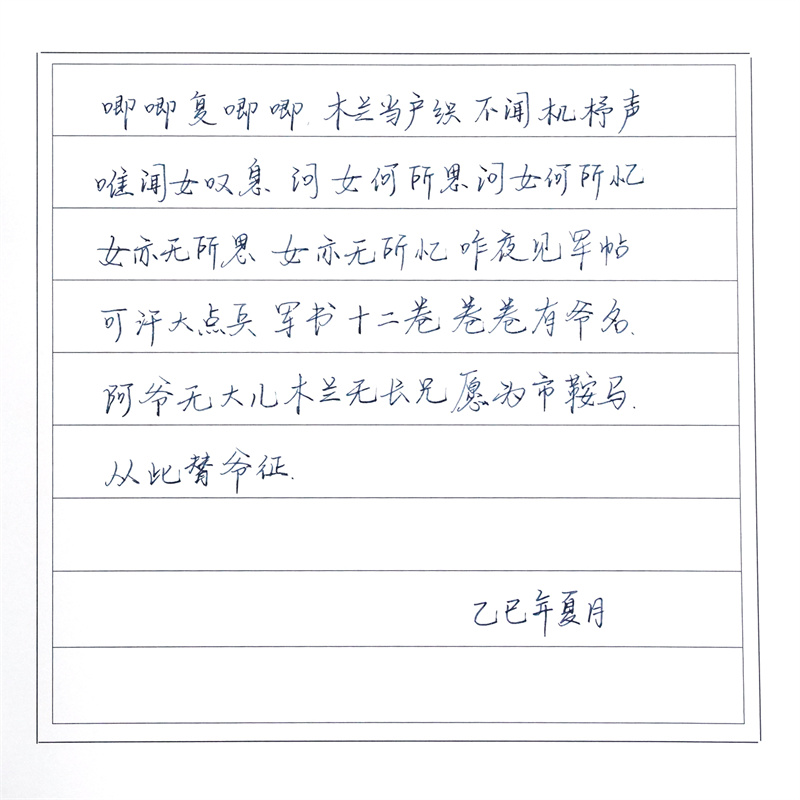 唧唧复唧唧 木兰当户织 不闻机杼声
唯闻女叹息 问女何所思 问女何所忆
女亦无所思 女亦无所忆 昨夜见军帖
可汗大点兵 军书十二卷 卷卷有爷名.
阿爷无大儿 木兰无长兄 愿为市鞍马.
从此替爷征.
乙巳年夏月